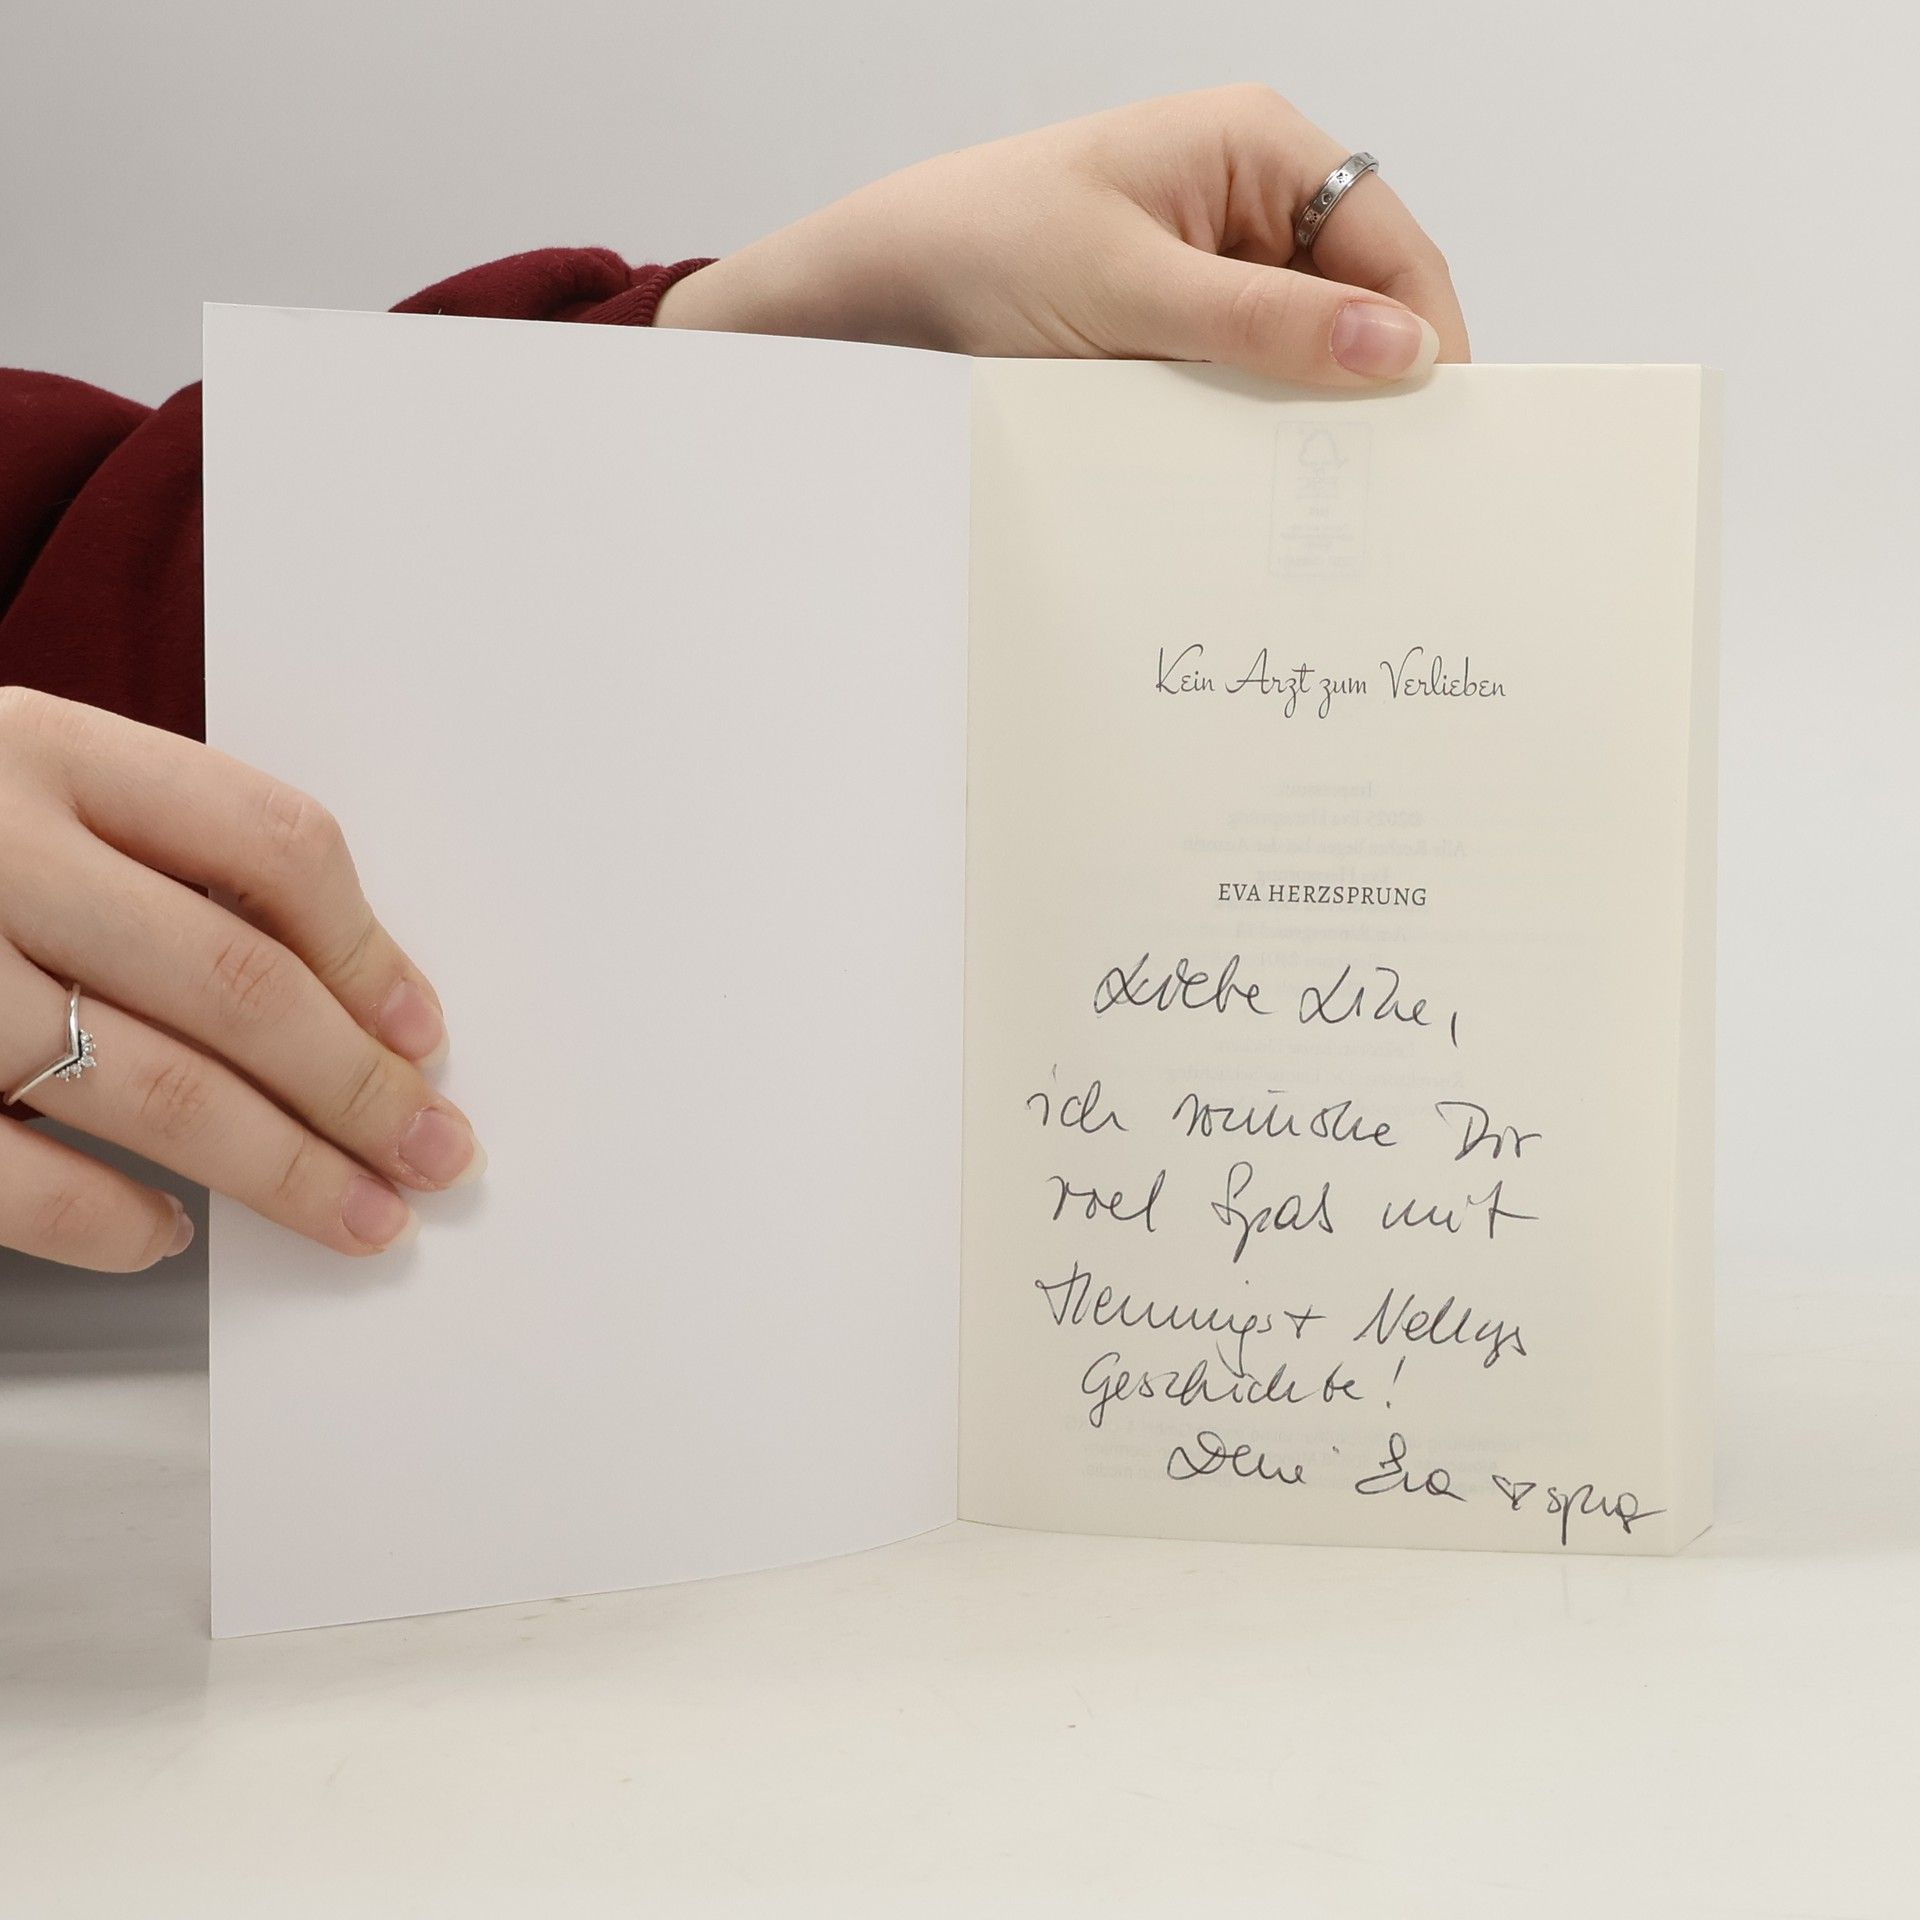 Kein Arzt zum Verlieben
EVA HERZSPRUNG
Liebe Line,
ich wünsche Dir
viel Spaß mit
Hennings + Nellys
Geschichte!
Deine Eva ♥sprung